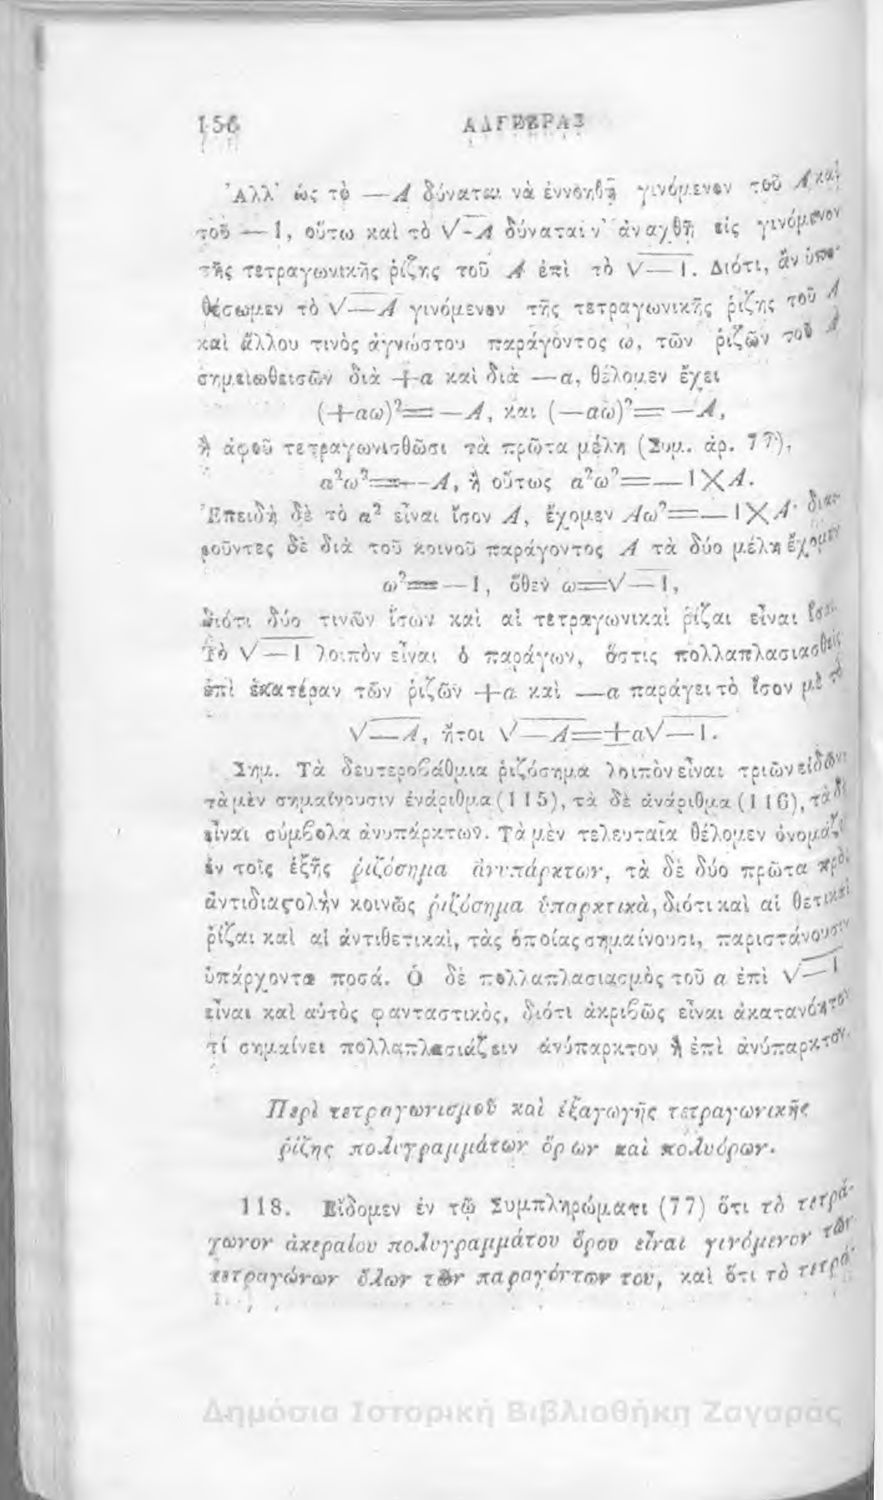 156
ΑΛΓΕΒΡΑΣ
Ἀλλ' ὡς τὸ —A δύναται νὰ ἐννοηθῇ γινόμενον τοῦ A καὶ
τοῦ —1, οὕτω καὶ τὸ √-A δύναται ν' ἀναχθῇ εἰς γινόμενον
τῆς τετραγωνικῆς ῥίζης τοῦ A ἐπὶ τὸ √—1. Διότι, ἂν ὑπο-
θέσωμεν τὸ √—A γινόμενον τῆς τετραγωνικῆς ῥίζης τοῦ A
καὶ ἄλλου τινὸς ἀγνώστου παράγοντος ω, τῶν ῥιζῶν τοῦ A
σημειωθεισῶν διὰ +a καὶ διὰ —a, θέλομεν ἔχει
(+aω)²=—A, καὶ (—aω)²=—A,
ἢ ἀφοῦ τετραγωνισθῶσι τὰ πρῶτα μέλη (Συμ. ἀρ. 77),
a²ω²=—A, ἢ οὕτως a²ω²=—1×A.
Ἐπειδὴ δὲ τὸ a² εἶναι ἴσον A, ἔχομεν Aω²=—1×A· διαι-
ροῦντες δὲ διὰ τοῦ κοινοῦ παράγοντος A τὰ δύο μέλη ἔχομεν
ω²=—1, ὅθεν ω=√—1,
διότι δύο τινῶν ἴσων καὶ αἱ τετραγωνικαὶ ῥίζαι εἶναι ἴσαι.
Τὸ √—1 λοιπὸν εἶναι ὁ παράγων, ὅστις πολλαπλασιασθεὶς
ἐπὶ ἑκατέραν τῶν ῥιζῶν +a καὶ —a παράγει τὸ ἴσον μὲ τὸ
√—A, ἤτοι √—A=±a√—1.
Σημ. Τὰ δευτεροβάθμια ῥιζόσημα λοιπὸν εἶναι τριῶν εἰδῶν·
τὰ μὲν σημαίνουσιν ἐνάριθμα (115), τὰ δὲ ἀνάριθμα (116), τὰ δὲ
εἶναι σύμβολα ἀνυπάρκτων. Τὰ μὲν τελευταῖα θέλομεν ὀνομάζει
ἐν τοῖς ἑξῆς ῥιζόσημα ἀνυπάρκτων, τὰ δὲ δύο πρῶτα πρὸς
ἀντιδιαϛολὴν κοινῶς ῥιζόσημα ὑπαρκτικὰ, διότι καὶ αἱ θετικαὶ
ῥίζαι καὶ αἱ ἀντιθετικαὶ, τὰς ὁποίας σημαίνουσι, παριστάνουσιν
ὑπάρχοντα ποσά. Ὁ δὲ πολλαπλασιασμὸς τοῦ a ἐπὶ √—1
εἶναι καὶ αὐτὸς φανταστικὸς, διότι ἀκριβῶς εἶναι ἀκατανόητον
τί σημαίνει πολλαπλασιάζειν ἀνύπαρκτον ἢ ἐπὶ ἀνύπαρκτον.
Περὶ τετραγωνισμοῦ καὶ ἐξαγωγῆς τετραγωνικῆς
ῥίζης πολυγραμμάτων ὅρων καὶ πολυόρων.
118. Εἴδομεν ἐν τῷ Συμπληρώματι (77) ὅτι τὸ τετρά-
γωνον ἀκεραίου πολυγραμμάτου ὅρου εἶναι γινόμενον τῶν
τετραγώνων ὅλων τῶν παραγόντων του, καὶ ὅτι τὸ τετρά-
Δημόσια Ιστορική Βιβλιοθήκη Ζαγοράς